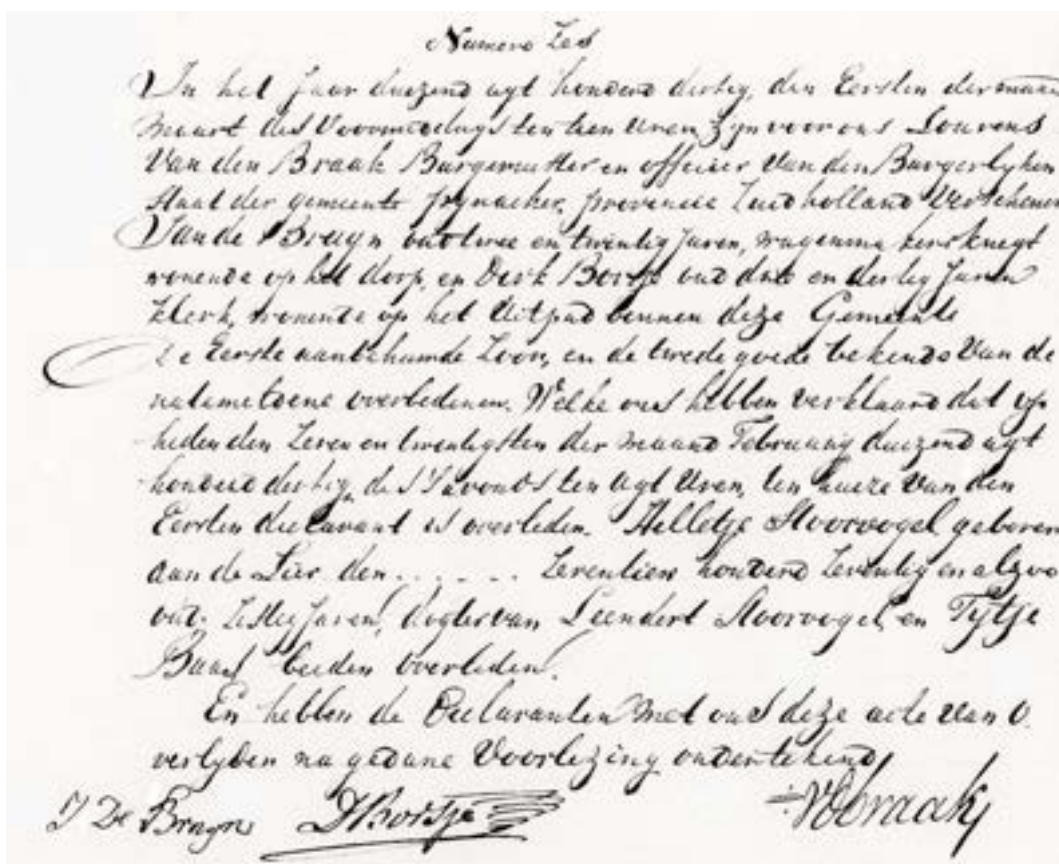 Numero Zes
In het Jaar duizend agt honderd dertig, den Eersten der maand
maart des Voormiddags ten tien uren zyn voor ons Lourens
Van den Braak Burgemeester en officier Van den Burgerlyken
Staat der gemeente Pynacker, provincie Zuidholland Verschenen
Van de Bruyn oud twee en twintig Jaren, wagenmakersknegt
wonende op het dorp, en Dirk Bortje oud drie en dertig Jaren
klerk, wonende op het Uitpad binnen deze Gemeente
de Eerste aanbehuwde Zoon, en de twede goede bekende Van de
natemeldene overledenen. Welke ons hebben verklaard dat op
heden den Zeven en twentigsten der maand February duizend agt
honderd dertig, des S'avonds ten agt Uren, ten huize van den
Eersten declarant is overleden. Helletje Stoorvogel geboren
aan de Lier den . . . . . . Zeventien honderd Zeventig en alzoo
oud Zestig Jaren, dogter van Leendert Stoorvogel, en Tytje
Baas beiden overleden.
En hebben de Declaranten met ons deze acte van O
verlyden na gedane Voorlezing ondertekend
J De Bruyn DBortje VDbraak